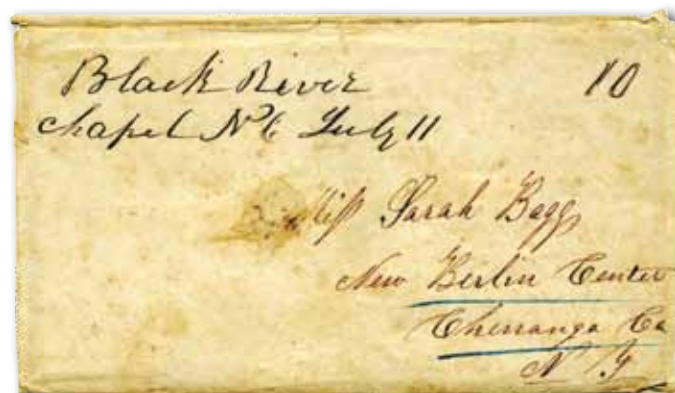 Black River 10
Chapel N C July 11
Miss Sarah Bagg
New Berlin Center
Chenango Co
N Y